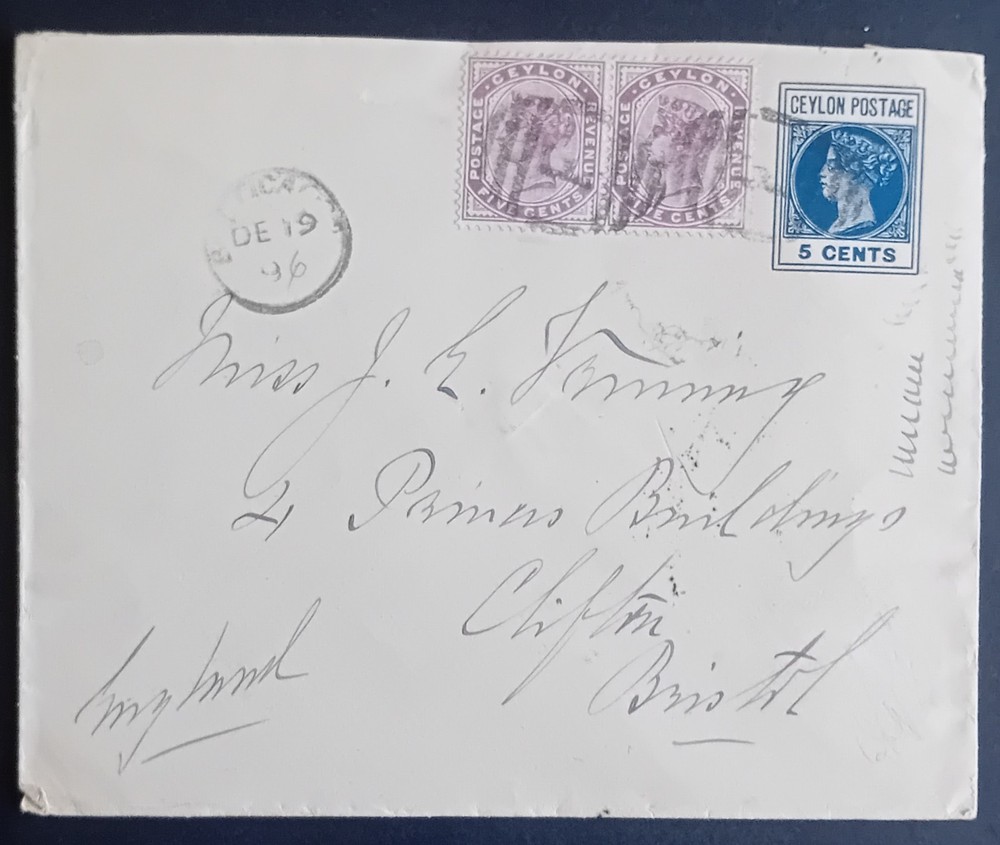 POSTAGE CEYLON REVENUE
FIVE CENTS
POSTAGE CEYLON REVENUE
FIVE CENTS
CEYLON POSTAGE
5 CENTS
DE 19
96
Miss J. E.
Princes Buildings
Clifton
Bristol
England